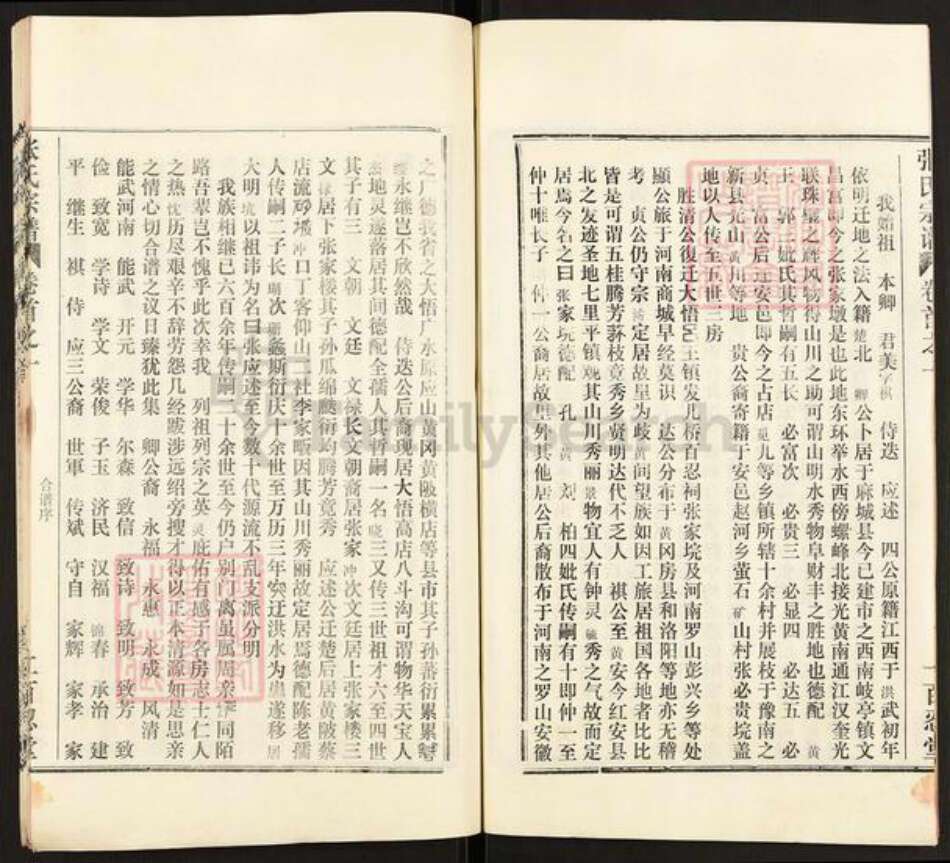 张氏宗谱 卷首之一
我始祖 本卿 君美字祺 侍迭 应述 四公原籍江西于洪武初年
依明迁地之法入籍楚北 卿公卜居于麻城县今已建市之西南岐亭镇文
昌宫即今之张家墩是也此地东环举水西傍螺峰北接光黄南通江汉奎光
联珠璧之辉风物得山川之助可谓山明水秀物阜财丰之胜地也德配 黄
王 郭三妣氏其哲嗣有五长 必富次 必贵三 必显四 必达五 必
贞 富公后迁安邑即今之古店觅儿等乡镇所辖十余村并展枝于豫南之
新县光山潢川等地 贵公裔寄籍于安邑赵河乡萤石矿山村张必贵垸盖
地以人传传至五世三房
胜清公復迁大悟吕王镇发儿桥百忍祠张家垸及河南罗山彭兴乡等处
显公旅于河南商城早经莫识 达公分布于黄冈房县和洛阳等地亦无稽
考 贞公仍守宗 定居故里为岐黄间望族如因工旅居祖国各地者比比
皆是可谓五桂腾芳荪枝竟秀乡贤明达代不乏人 祺公至黄安今红安县
北之发迹圣地七里平镇观其山川秀丽景物宜人有钟灵毓秀之气故而定
居焉今名之曰张家坑德配 孔 黄 刘 柏四妣氏传嗣有十即仲一至
仲十唯长子 仲一公裔居故里外其他居公后裔散布于河南之罗山安徽
百忍堂
之广德我省之大悟广水原应山黄冈黄陂横店等县市其子孙蕃衍累累
继永继岂不欣然哉 侍迭公后裔现居大悟高店八斗沟可谓物华天宝人
杰地灵遂落居其间德配全孺人其哲嗣一名晓三又传三世祖才六至四世
其子有三 文朝 文廷 文禄长文朝裔居张家冲次文廷居上张家楼三
文禄居下张家楼其子孙瓜绵瓞衍均腾芳竟秀 应述公迁楚后居黄陂蔡
店流 墈冲口丁客仰山二社李家畈因其山川秀丽故定居焉德配陈老孺
人传嗣二子长 次 螽斯衍庆十余世至万历三年突迁洪水为患遂移居
大明坑以祖讳为名曰张应述至今数十代源流不乱支派分明
我族相继已六百余年传嗣二十余世至今仍户别门离虽属周亲怿同陌
路吾辈岂不愧乎此次幸我 列祖列宗之英灵庇佑有感于各房志士仁人
之热忱历尽艰辛不辞劳怨几经跋涉远绍旁搜才得以正本清源如是思亲
之情心切合谱之议日臻犹此集 卿公裔 永福 永惠 永成 风清
能武河南 能武 开元 学华 尔森 致信 致诗 致明 致芳 致
俭 致宽 学诗 学文 荣俊 子玉 济民 汉福 锦春 承治 建
平 继生 祺 侍 应三公裔 世军 传斌 守自 家辉 家孝 家
合谱序
张氏宗谱 卷首之一
百忍堂
FamilySearch